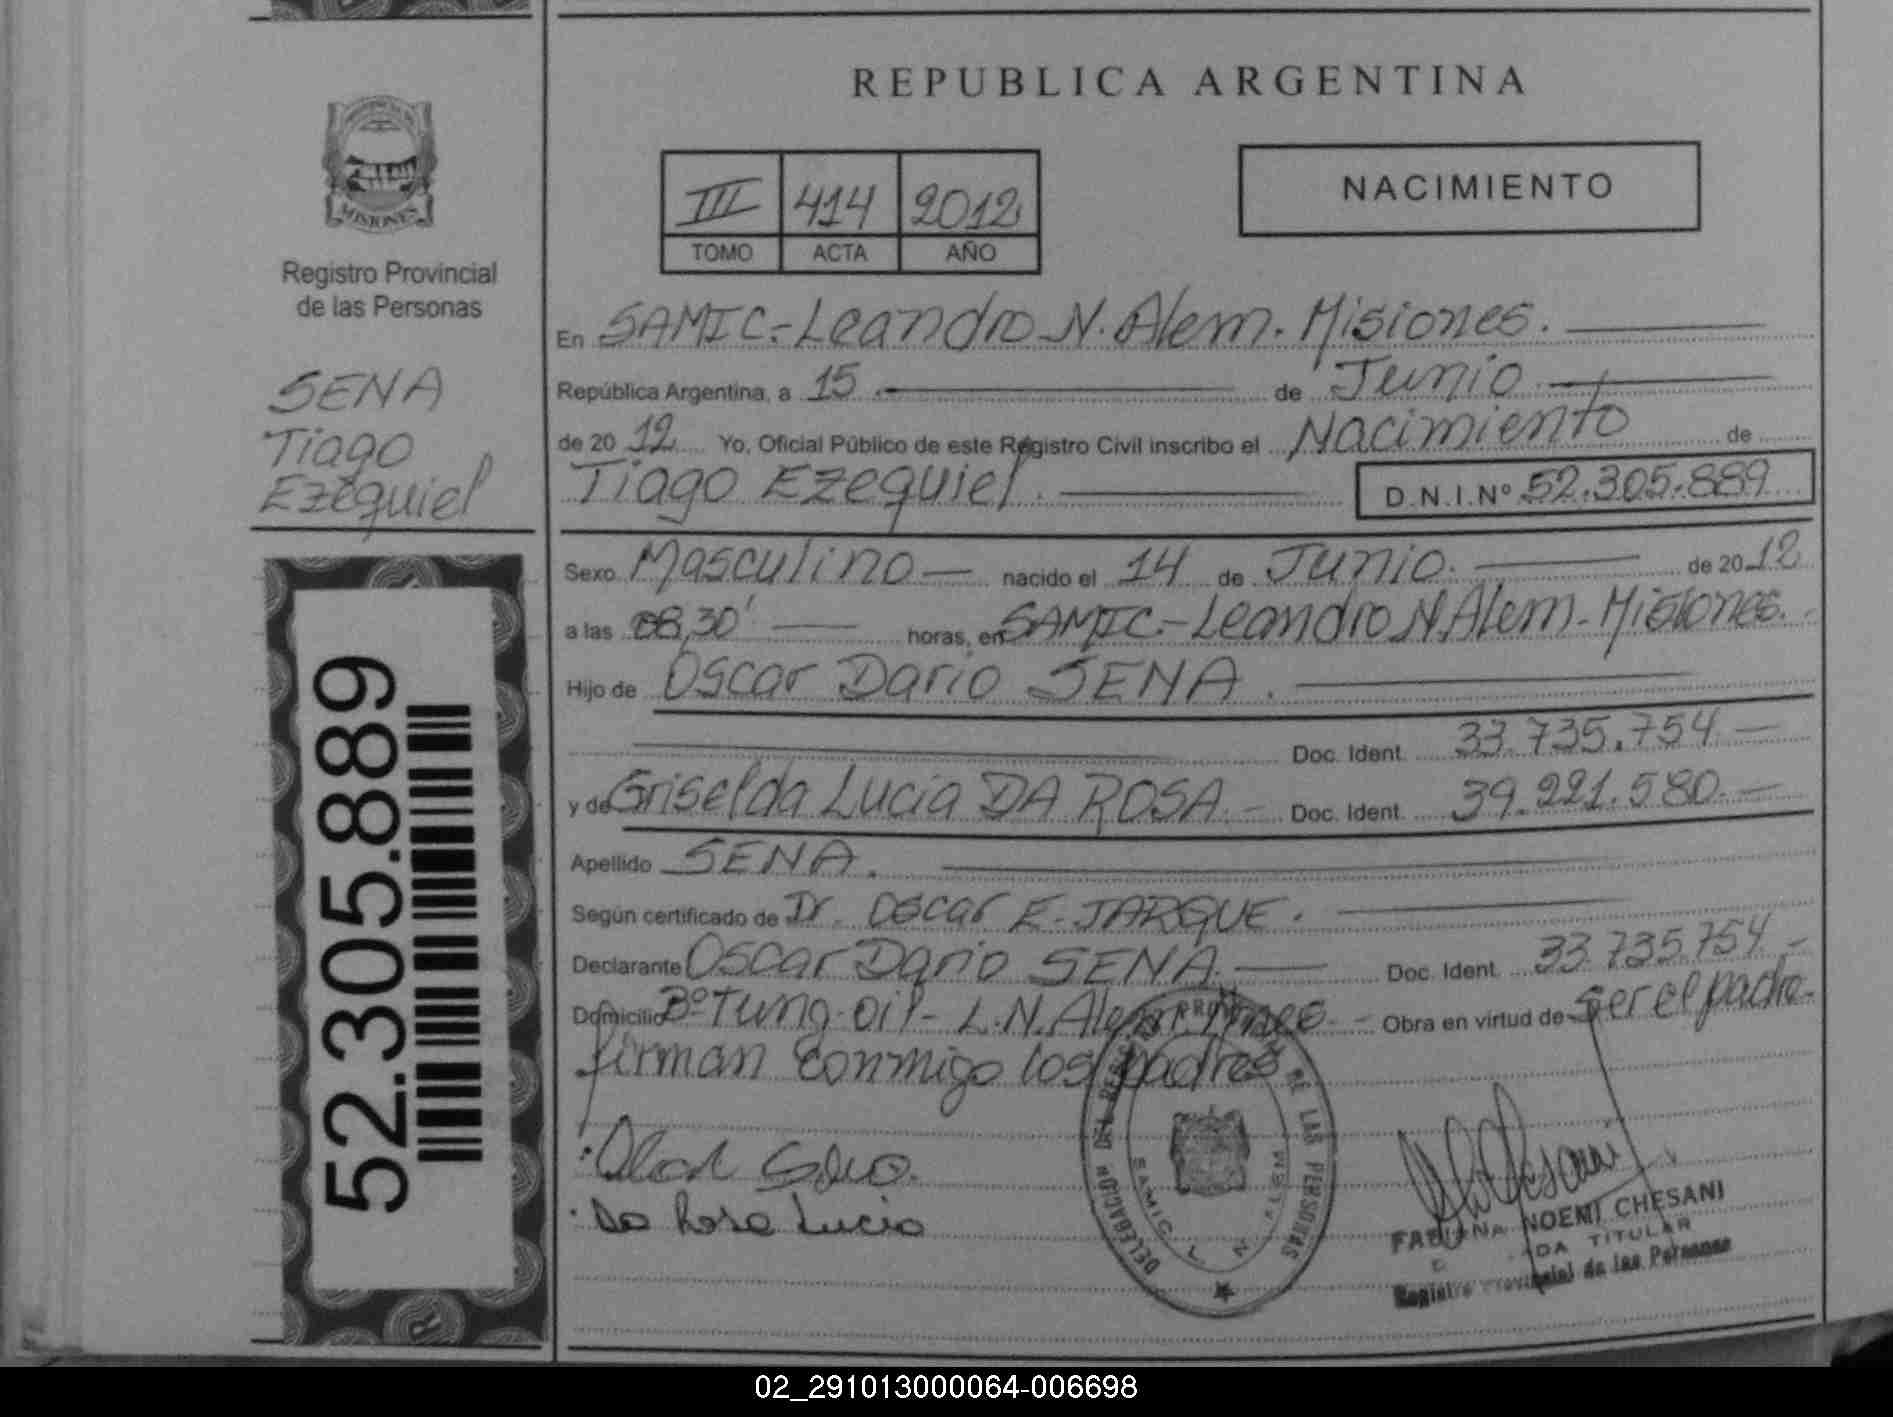 REPUBLICA ARGENTINA
MISIONES
Registro Provincial
de las Personas
III 414 2012
TOMO ACTA AÑO
NACIMIENTO
SENA
Tiago
Ezequiel
En SAMIC.- Leandro N. Alem. Misiones.
República Argentina, a 15 de Junio
de 20 12 Yo, Oficial Público de este Registro Civil inscribo el Nacimiento de
Tiago Ezequiel. D.N.I.Nº 52.305.889
Sexo Masculino nacido el 14 de Junio. de 20 12
a las 08,30' horas, en SAMIC.- Leandro N. Alem. Misiones.
Hijo de Oscar Dario SENA.
Doc. Ident. 33.735.754
y de Griselda Lucia DA ROSA.- Doc. Ident. 39.221.580.-
Apellido SENA.
Según certificado de Dr. Oscar E. JARQUE.
Declarante Oscar Dario SENA. Doc. Ident. 33.735.754.-
Domicilio Bº Tung-oil- L.N. Alem. Mnes.- Obra en virtud de Ser el padre.-
firman conmigo los padres
Da Rosa Lucia
52.305.889
DELEGACION DEL REGISTRO PROVINCIAL DE LAS PERSONAS
SAMIC L. N. ALEM
FABIANA NOEMI CHESANI
TITULAR
Registro Provincial de las Personas
02_291013000064-006698